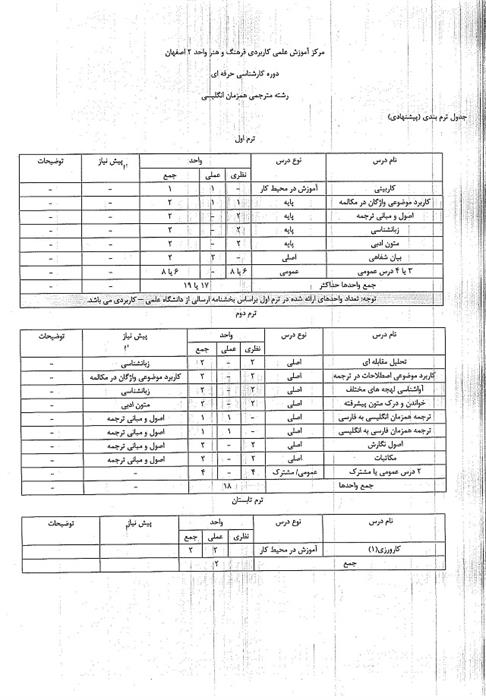 مرکز آموزش علمی کاربردی فرهنگ و هنر واحد ۲ اصفهان
دوره کارشناسی حرفه ای
رشته مترجمی همزمان انگلیسی
جدول ترم بندی (پیشنهادی)
ترم اول
نام درس نوع درس واحد پیش نیاز توضیحات
نظری عملی جمع
کاربینی آموزش در محیط کار - ۱ ۱ - -
کاربرد موضوعی واژگان در مکالمه پایه ۱ ۱ ۲ - -
اصول و مبانی ترجمه پایه ۲ - ۲ - -
زبانشناسی پایه ۲ - ۲ - -
متون ادبی پایه ۲ - ۲ - -
بیان شفاهی اصلی - ۲ ۲ - -
۳ یا ۴ درس عمومی عمومی ۶ یا ۸ - ۶ یا ۸ - -
جمع واحدها حداکثر ۱۷ یا ۱۹ - -
توجه: تعداد واحدهای ارائه شده در ترم اول براساس بخشنامه ارسالی از دانشگاه علمی – کاربردی می باشد.
ترم دوم
نام درس نوع درس واحد پیش نیاز توضیحات
نظری عملی جمع
تحلیل مقابله ای اصلی ۲ - ۲ زبانشناسی -
کاربرد موضوعی اصطلاحات در ترجمه اصلی ۲ - ۲ کاربرد موضوعی واژگان در مکالمه -
آواشناسی لهجه های مختلف اصلی ۲ - ۲ زبانشناسی -
خواندن و درک متون پیشرفته اصلی ۲ - ۲ متون ادبی -
ترجمه همزمان انگلیسی به فارسی اصلی - ۱ ۱ اصول و مبانی ترجمه -
ترجمه همزمان فارسی به انگلیسی اصلی - ۱ ۱ اصول و مبانی ترجمه -
اصول نگارش اصلی ۲ - ۲ اصول و مبانی ترجمه -
مکاتبات اصلی ۲ - ۲ اصول و مبانی ترجمه -
۲ درس عمومی یا مشترک عمومی/مشترک ۴ - ۴ - -
جمع واحدها ۱۸ -
ترم تابستان
نام درس نوع درس واحد پیش نیاز توضیحات
نظری عملی جمع
کارورزی(۱) آموزش در محیط کار - ۲ ۲
جمع ۲